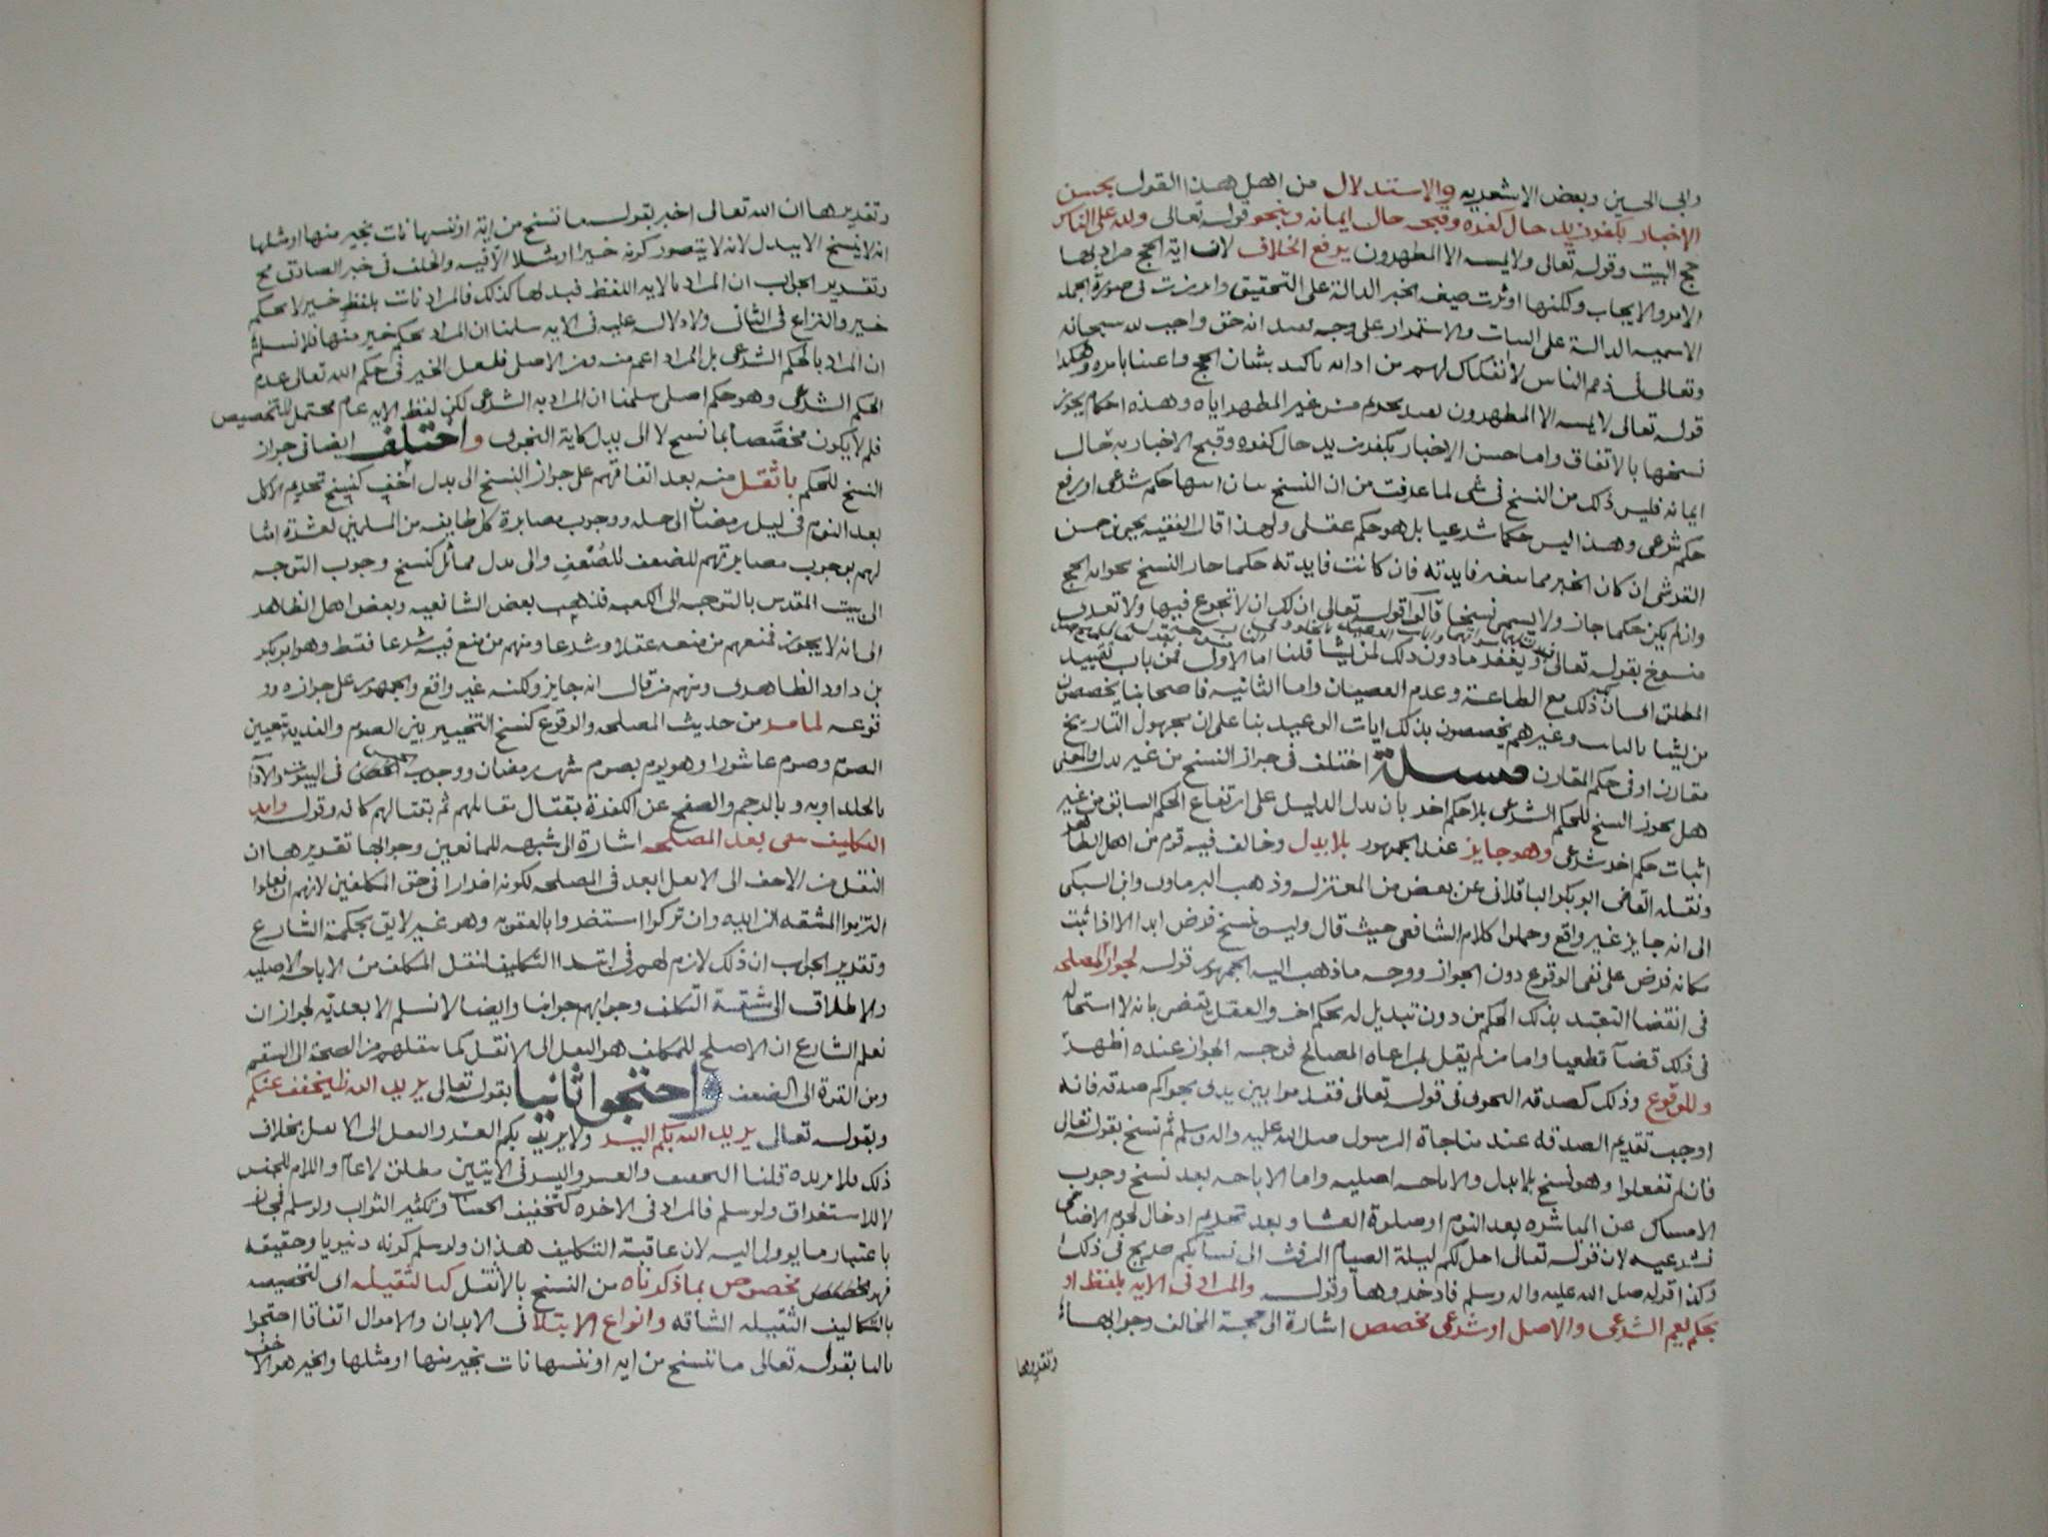 وابى الحسين وبعض الاشعريه والاستدلال من اهل هذا القول بحسن
الاخبار بكفر زيد حال كفره وقبحه حال ايمانه وبنحو قوله تعالى ولله على الناس
حج البيت وقوله تعالى ولا يمسه الا المطهرون يرفع الخلاف لان اية الحج مراد بها
الامر والايجاب ولكنها اوثرت صيغه الخبر الدالة على التحقيق وابرزت فى صورة الجمله
الاسميه الدالة على الثبات والاستمرار على وجه انه حق واجب لله سبحانه
وتعالى فى ذمم الناس لا انفكاك لهم من ادائه بشان الحج واعتنا بامره وهكذا
قوله تعالى لا يمسه الا المطهرون تحريم مس غير المطهر اياه وهذه احكام يجوز
نسخها بالاتفاق واما حسن الاخبار بكفر زيد حال كفره وقبح الاخبار به حال
ايمانه فليس ذلك من النسخ فى شى لما عرفت من ان النسخ بيان انتها حكم شرعى او رفع
حكم شرعى وهذا ليس حكما شرعيا بل هو حكم عقلى ولهذا قال الفقيه يحيى بن حسن
القرشى ان كان الخبر مما فايدته فان كانت فايدته حكما جاز النسخ الحج
وان لم يكن حكما جاز ولا يسمى نسخا قالوا قوله تعالى ان لك ان لا تجوع فيها ولا تعرى
منسوخ بقوله تعالى ويغفر ما دون ذلك لمن يشا قلنا اما الاول فمن باب تقييد
المطلق ذلك مع الطاعة وعدم العصيان واما الثانيه فاصحابنا يخصصون
من يشا وغيرهم يخصصون بذلك ايات الوعيد بنا على ان مجهول التاريخ
مقارن او فى حكم المقارن مسئلة اختلف فى جواز النسخ من غير بدل والمعنى
هل يجوز النسخ للحكم الشرعى بلا حكم اخر بان يدل الدليل على ارتفاع الحكم السابق من غير
اثبات حكم اخر شرعى وهو جايز عند الجمهور بلا بدل وخالف فيه قوم من اهل الظاهر
ونقله القاضى ابو بكر الباقلانى عن بعض من المعتزله وذهب البرماوى وابن السبكى
الى انه جايز غير واقع وحملوا كلام الشافعى حيث قال وليس نسخ فرض ابدا الا اذا ثبت
مكانه فرض على نفى الوقوع دون الجواز ووجه ما ذهب اليه الجمهور قوله لجواز المصلحه
فى انقضا التعبد بذلك الحكم من دون تبديل له بحكم اخر والعقل يقضى بانه لا استحاله
فى ذلك قضآ قطعيا واما من لم يقل بمراعاه المصالح فوجه الجواز عنده اظهر
وللوقوع وذلك كصدقه النجوى فى قوله تعالى فقدموا بين يدى نجواكم صدقه فانه
اوجب تقديم الصدقه عند مناجاة الرسول صلى الله عليه واله وسلم ثم نسخ بقوله تعالى
فان لم تفعلوا وهو نسخ بلا بدل والاباحه اصليه واما الاباحه بعد نسخ وجوب
الامساك عن المباشره بعد النوم او صلوة العشا وبعد تحريم ادخال لحوم الاضاحى
فشرعيه لان قوله تعالى احل لكم ليلة الصيام الرفث الى نسائكم صريح فى ذلك
وكذا قوله صلى الله عليه واله وسلم فادخروها وقوله والمراد فى الايه بلفظ او
بحكم يعم الشرعى والاصل او شرعى مخصص اشارة الى حجة المخالف وجوابها
وتقديرها
وتقديرها ان الله تعالى اخبر بقوله ما ننسخ من اية او ننسها نات بخير منها او مثلها
انه لا ينسخ الا ببدل لانه لا يتصور كونه خيرا او مثلا الا فيه والخلف فى خبر الصادق مح
وتقدير الجواب ان المراد بالايه اللفظ فبدلها كذلك فالمراد نات بلفظ خير لا بحكم
خير والنزاع فى الثانى ولا دلاله عليه فى الايه سلمنا ان المراد بحكم خير منها فلا نسلم
ان المراد بالحكم الشرعى بل المراد اعم منه ومن الاصلى فلعل الخير فى حكم الله تعالى عدم
الحكم الشرعى وهو حكم اصلى سلمنا ان المراد به الشرعى لكن لفظ الايه عام محتمل للتخصيص
فلم لا يكون مخصصا بما نسخ لا الى بدل كاية النجوى واختلف ايضا فى جواز
النسخ للحكم باثقل منه بعد اتفاقهم على جواز النسخ الى بدل اخف كنسخ تحريم الاكل
بعد النوم فى ليل رمضان الى حله ووجوب مصابرة كل طايفه من المسلمين لعشرة امثا
لهم بوجوب مصابرتهم للضعف للضعف والى بدل مماثل كنسخ وجوب التوجه
الى بيت المقدس بالتوجه الى الكعبه فذهب بعض الشافعيه وبعض اهل الظاهر
الى انه لا يجوز فمنهم من منعه عقلا وشرعا ومنهم من منع فيه شرعا فقط وهو ابو بكر
بن داود الظاهرى ومنهم من قال انه جايز ولكنه غير واقع والجمهور على جوازه وو
قوعه لما مر من حديث المصلحه والوقوع كنسخ التخيير بين الصوم والفدية بتعيين
الصوم وصوم عاشورا وهو يوم بصوم شهر رمضان ووجوب فى البيوت والاذا
بالجلد اوبه وبالرجم والصفح عن الكفرة بقتال مقاتلهم ثم بقتالهم كافه وقوله وابعد
التكليف بعد المصلحه اشارة الى شبهه للمانعين وجوابها تقديرها ان
النقل من الاخف الى الاثقل ابعد فى المصلحه لكونه اضرارا فى حق المكلفين لانهم ان فعلوا
التزموا المشقه الزايده وان تركوا استضروا بالعقوبه وهو غير لايق بحكمة الشارع
وتقدير الجواب ان ذلك لازم لهم فى ابتدا التكليف لنقل المكلف من الاباحه الاصليه
والاطلاق الى مشقة التكلف وجوابهم جوابنا وايضا لا نسلم الابعديه لجواز ان
يعلم الشارع ان الاصلح للمكلف هو النقل الى الاثقل كما ينقلهم من الصحة الى السقم
ومن القوة الى الضعف واحتجوا ثانيا بقوله تعالى يريد الله ان يخفف عنكم
وبقوله تعالى يريد الله بكم اليسر ولا يريد بكم العسر والنقل الى الاثقل بخلاف
ذلك فلا يريده قلنا التخفيف والعسر واليسر فى الايتين مطلق لا عام واللام للجنس
لا للاستغراق ولو سلم فالمراد فى الاخره كتخفيف الحساب وتكثير الثواب ولو سلم فمجاز
باعتبار ما يوول اليه لان عاقبة التكليف هذان ولو سلم كونه دنيويا وحقيقه
فهو مخصوص بما ذكرناه من النسخ بالاثقل كما لثقيله اى لتخصيصه
بالتكاليف الثقيله الشاقه وانواع الابتلا فى الابدان والاموال اتفاقا احتجوا
ثالثا بقوله تعالى ما ننسخ من ايه او ننسها نات بخير منها او مثلها والخير هو الاخف